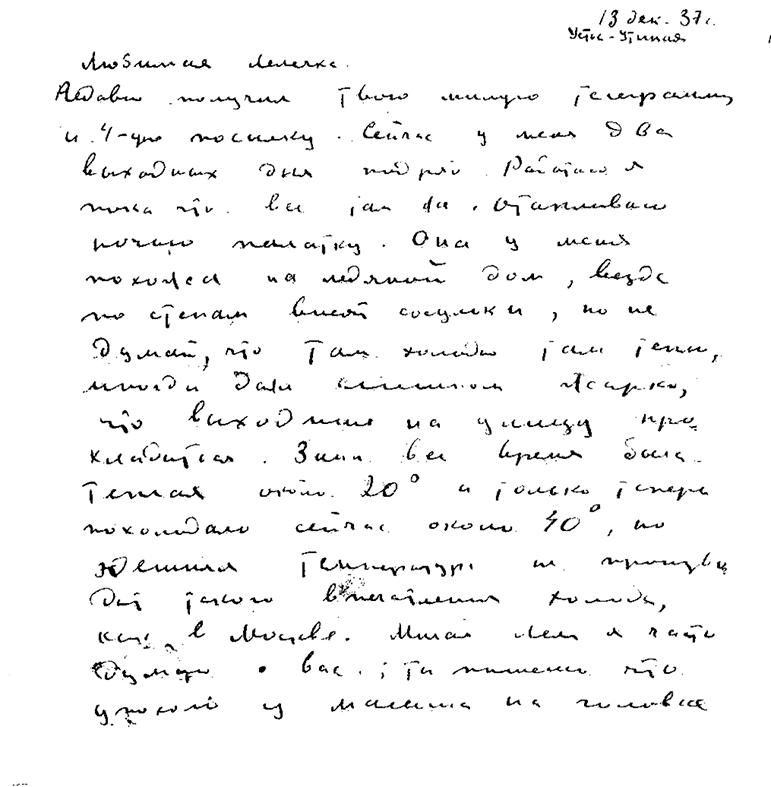 13 дек. 37г.
Усть-Утиная
Любимая Лелечка.
Недавно получил твою милую телеграмму
и 4-ую посылку. Сейчас у меня два
выходных дня подряд. Работаю я
пока что все там же. Отапливаю
ночью палатку. Она у меня
похожа на ледяной дом, везде
по стенам висят сосульки, но не
думай, что там холодно там тепло,
иногда даже слишком жарко,
что выходишь на улицу про
хладиться. Зима все время была
теплая около 20° и только теперь
похолодало сейчас около 40°, но
здешняя температура не произво
дит такого впечатления холода,
как в Москве. Милая Леля я часто
думаю о вас. Ты пишешь что
у малыша на головке